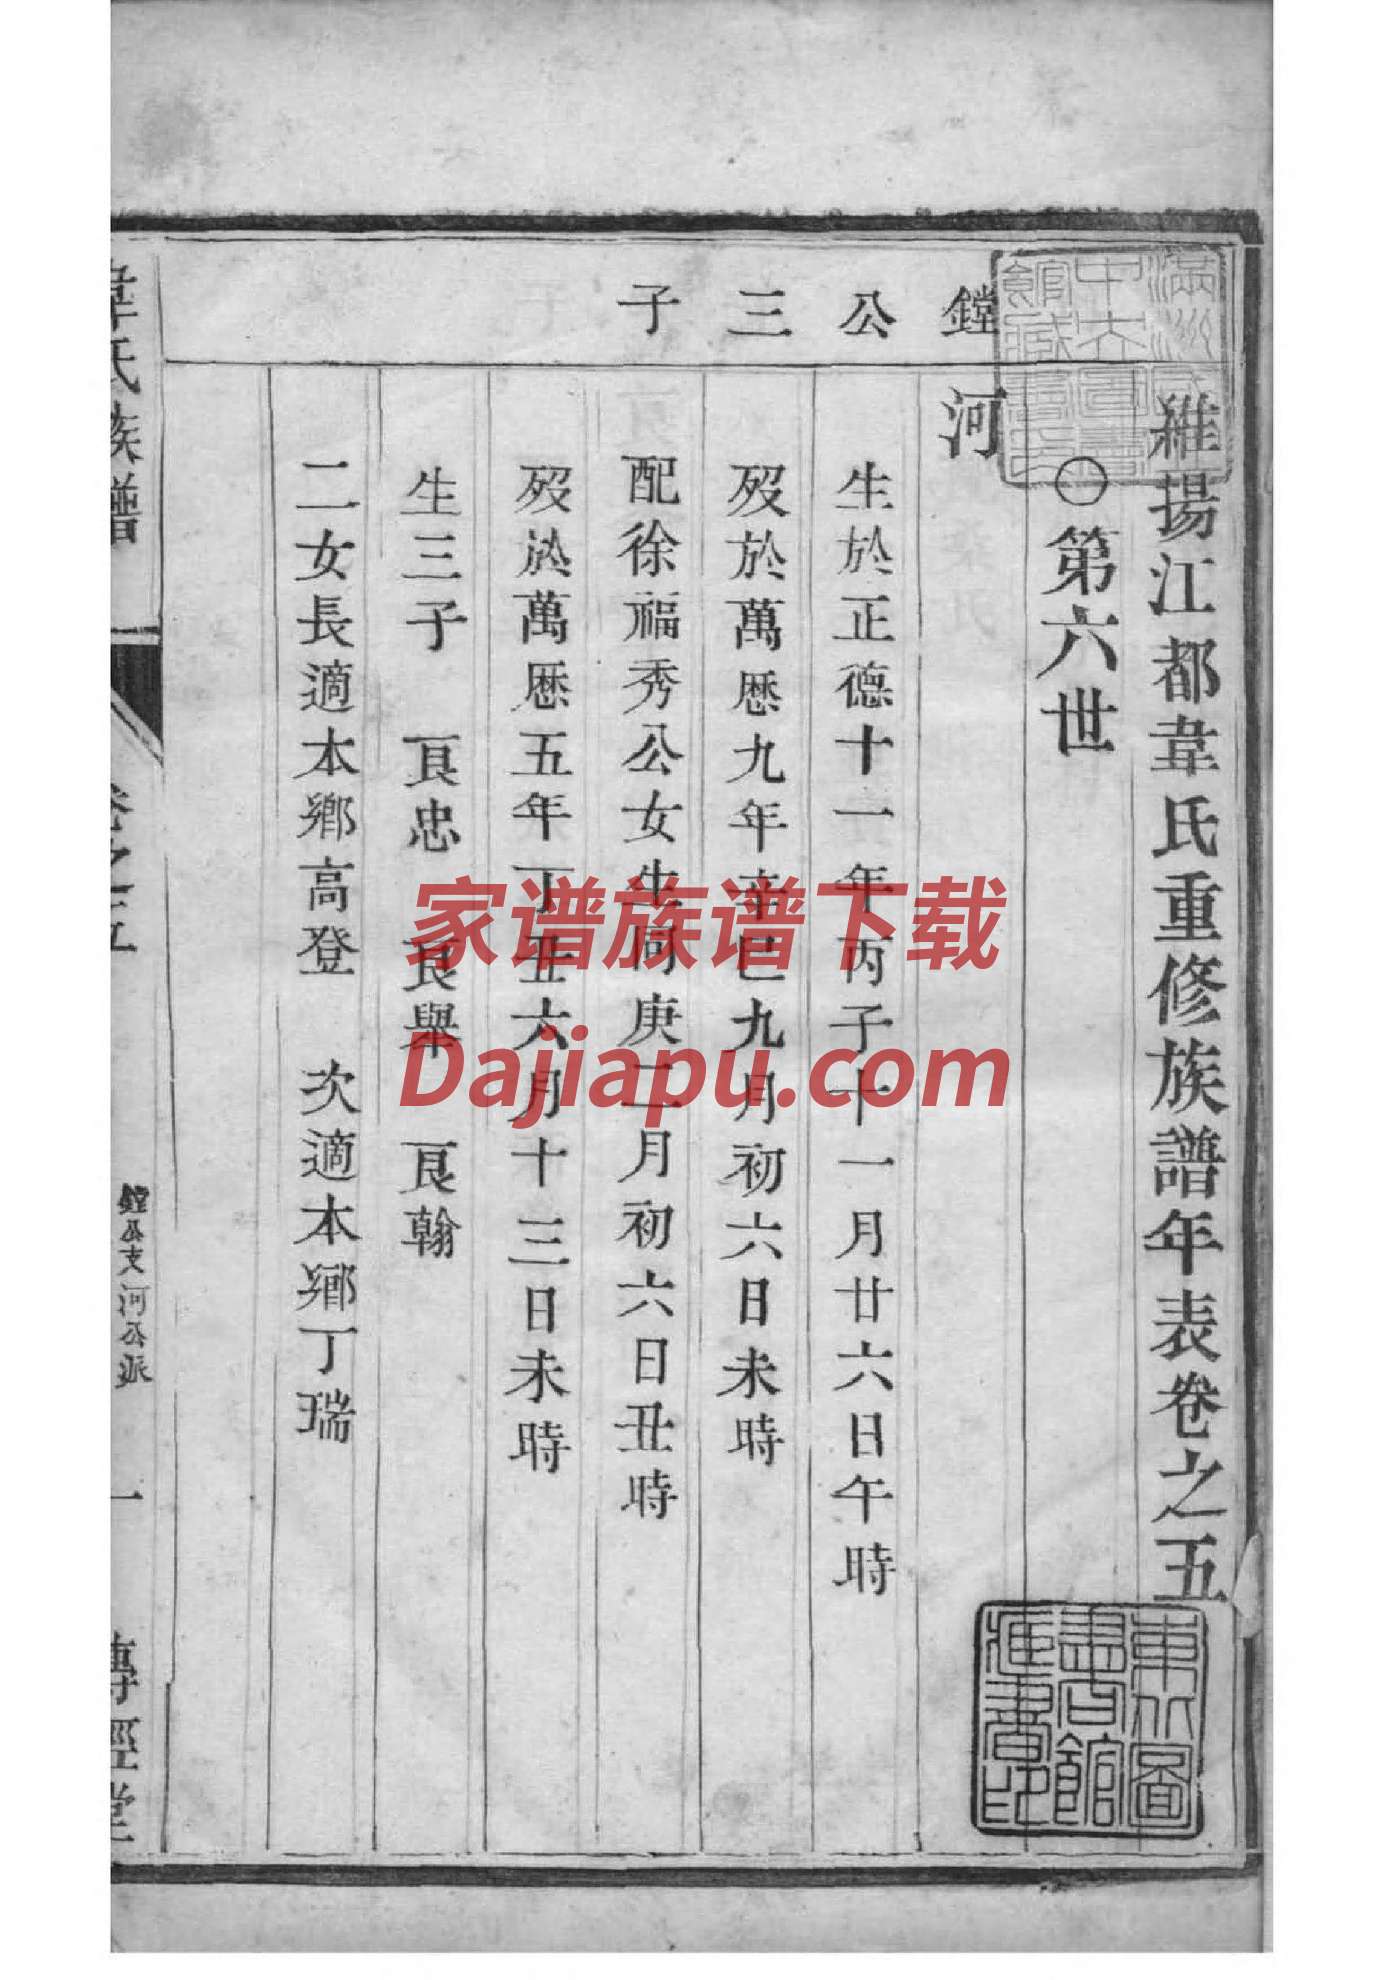 維揚江都韋氏重修族譜年表卷之五
〇第六世
鏜公三子
河
生於正德十一年丙子十一月廿六日午時
歿於萬歷九年辛巳九月初六日未時
配徐福秀公女生同庚二月初六日丑時
歿於萬歷五年丁丑六月十三日未時
生三子 良忠 良舉 良翰
二女長適本鄉高登 次適本鄉丁瑞
韋氏族譜 卷之五 鏜公支河公派 一 傳經堂
東北圖書館藏書印
家谱族谱下载
Dajiapu.com